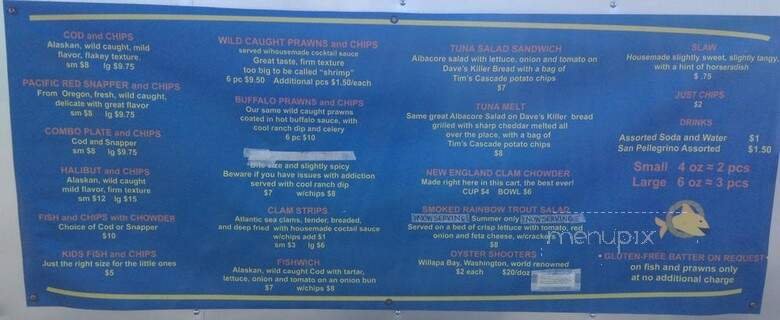 COD and CHIPS
Alaskan, wild caught, mild
flavor, flakey texture,
sm $8 lg $9.75
PACIFIC RED SNAPPER and CHIPS
From Oregon, fresh, wild caught,
delicate with great flavor
sm $8 lg $9.75
COMBO PLATE and CHIPS
Cod and Snapper
sm $8 lg $9.75
HALIBUT and CHIPS
Alaskan, wild caught
mild flavor, firm texture
sm $12 lg $15
FISH and CHIPS with CHOWDER
Choice of Cod or Snapper
$10
KIDS FISH and CHIPS
Just the right size for the little ones
$5
WILD CAUGHT PRAWNS and CHIPS
served w/housemade cocktail sauce
Great taste, firm texture
too big to be called "shrimp"
6 pc $9.50 Additional pcs $1.50/each
BUFFALO PRAWNS and CHIPS
Our same wild caught prawns
coated in hot buffalo sauce, with
cool ranch dip and celery
6 pc $10
Bite size and slightly spicy
Beware if you have issues with addiction
served with cool ranch dip
$7 w/chips $8
CLAM STRIPS
Atlantic sea clams, tender, breaded,
and deep fried with housemade coctail sauce
w/chips add $1
sm $3 lg $6
FISHWICH
Alaskan, wild caught Cod with tartar,
lettuce, onion and tomato on an onion bun
$7 w/chips $8
TUNA SALAD SANDWICH
Albacore salad with lettuce, onion and tomato on
Dave's Killer Bread with a bag of
Tim's Cascade potato chips
$7
TUNA MELT
Same great Albacore Salad on Dave's Killer bread
grilled with sharp cheddar melted all
over the place, with a bag of
Tim's Cascade potato chips
$8
NEW ENGLAND CLAM CHOWDER
Made right here in this cart, the best ever!
CUP $4 BOWL $6
SMOKED RAINBOW TROUT SALAD
NOW SERVING Summer only NOW SERVING
Served on a bed of crisp lettuce with tomato, red
onion and feta cheese, w/crackers
$8
OYSTER SHOOTERS
Willapa Bay, Washington, world renowned
$2 each $20/doz
SLAW
Housemade slightly sweet, slightly tangy,
with a hint of horseradish
$ .75
JUST CHIPS
$2
DRINKS
Assorted Soda and Water $1
San Pellegrino Assorted $1.50
Small 4 oz ≈ 2 pcs
Large 6 oz ≈ 3 pcs
menupix
• GLUTEN-FREE BATTER ON REQUEST •
on fish and prawns only
at no additional charge